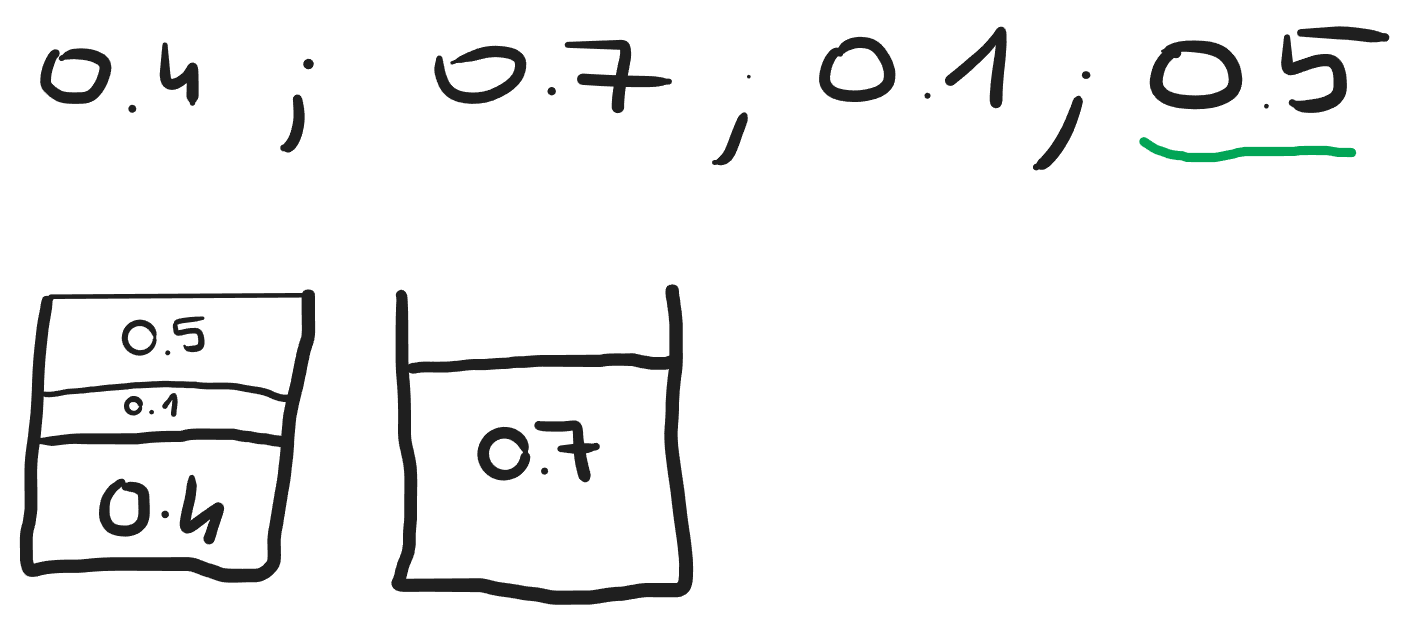 0.4 ; 0.7 ; 0.1 ; 0.5
0.5
0.1
0.4
0.7